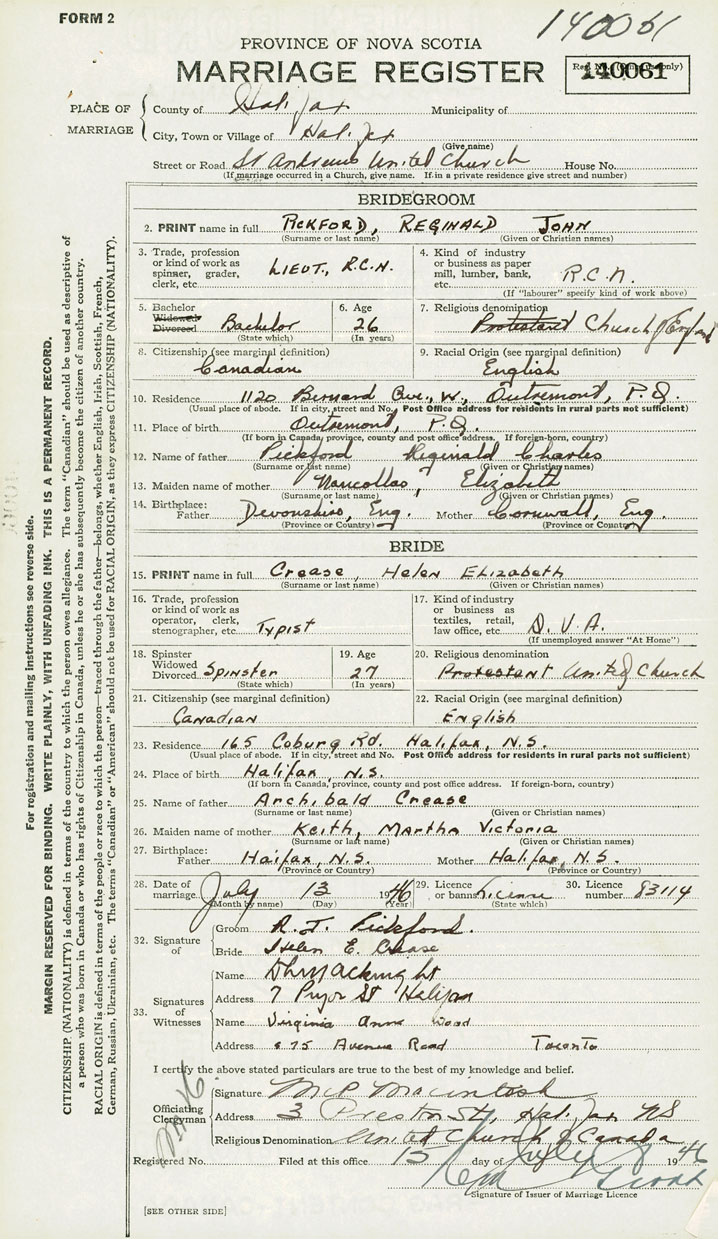 FORM 2
140061
PROVINCE OF NOVA SCOTIA
MARRIAGE REGISTER
Reg. No. (Office use only)
140061
PLACE OF MARRIAGE
County of Halifax Municipality of
City, Town or Village of Halifax
(Give name)
Street or Road St Andrews United Church House No.
(If marriage occurred in a Church, give name. If in a private residence give street and number)
BRIDEGROOM
2. PRINT name in full PICKFORD, REGINALD JOHN
(Surname or last name) (Given or Christian names)
3. Trade, profession or kind of work as spinner, grader, clerk, etc. LIEUT., R.C.N.
4. Kind of industry or business as paper mill, lumber, bank, etc. R.C.N.
(If "labourer" specify kind of work above)
5. Bachelor Widowed Divorced Bachelor
(State which)
6. Age 26
(In years)
7. Religious denomination Protestant Church of England
8. Citizenship (see marginal definition) Canadian
9. Racial Origin (see marginal definition) English
10. Residence 1120 Bernard Ave., W., Outremont, P.Q.
(Usual place of abode. If in city, street and No. Post Office address for residents in rural parts not sufficient)
11. Place of birth Outremont, P.Q.
(If born in Canada, province, county and post office address. If foreign-born, country)
12. Name of father Pickford Reginald Charles
(Surname or last name) (Given or Christian names)
13. Maiden name of mother Elizabeth
(Surname or last name) (Given or Christian names)
14. Birthplace: Father Devonshire, Eng. Mother Cornwall, Eng.
(Province or Country) (Province or Country)
BRIDE
15. PRINT name in full Crease, Helen Elizabeth
(Surname or last name) (Given or Christian names)
16. Trade, profession or kind of work as operator, clerk, stenographer, etc. Typist
17. Kind of industry or business as textiles, retail, law office, etc. D.V.A.
(If unemployed answer "At Home")
18. Spinster Widowed Divorced Spinster
(State which)
19. Age 27
(In years)
20. Religious denomination Protestant United Church
21. Citizenship (see marginal definition) Canadian
22. Racial Origin (see marginal definition) English
23. Residence 165 Coburg Rd. Halifax, N.S.
(Usual place of abode. If in city, street and No. Post Office address for residents in rural parts not sufficient)
24. Place of birth Halifax, N.S.
(If born in Canada, province, county and post office address. If foreign-born, country)
25. Name of father Archibald Crease
(Surname or last name) (Given or Christian names)
26. Maiden name of mother Keith, Martha Victoria
(Surname or last name) (Given or Christian names)
27. Birthplace: Father Haifax, N.S. Mother Halifax, N.S.
(Province or Country) (Province or Country)
28. Date of marriage July 13 1946
(Month by name) (Day) (Year)
29. Licence or banns License
(State which)
30. Licence number 83114
32. Signature of
Groom R. J. Pickford.
Bride Helen E. Crease
33. Signatures of Witnesses
Name
Address 7 Pryor St Halifax
Name Virginia Anne Wood
Address 675 Avenue Road Toronto
I certify the above stated particulars are true to the best of my knowledge and belief.
Officiating Clergyman
Signature Macintosh
Address 3 Preston St, Halifax NS
Religious Denomination United Church of Canada
Registered No. Filed at this office 15 day of July 1946
Signature of Issuer of Marriage Licence
[SEE OTHER SIDE]
For registration and mailing instructions see reverse side.
MARGIN RESERVED FOR BINDING. WRITE PLAINLY, WITH UNFADING INK. THIS IS A PERMANENT RECORD.
CITIZENSHIP (NATIONALITY) is defined in terms of the country to which the person owes allegiance. The term "Canadian" should be used as descriptive of
a person who was born in Canada or who has rights of Citizenship in Canada, unless he or she has subsequently become the citizen of another country.
RACIAL ORIGIN is defined in terms of the people or race to which the person—traced through the father—belongs, whether English, Irish, Scottish, French,
German, Russian, Ukrainian, etc. The terms "Canadian" or "American" should not be used for RACIAL ORIGIN, as they express CITIZENSHIP (NATIONALITY).